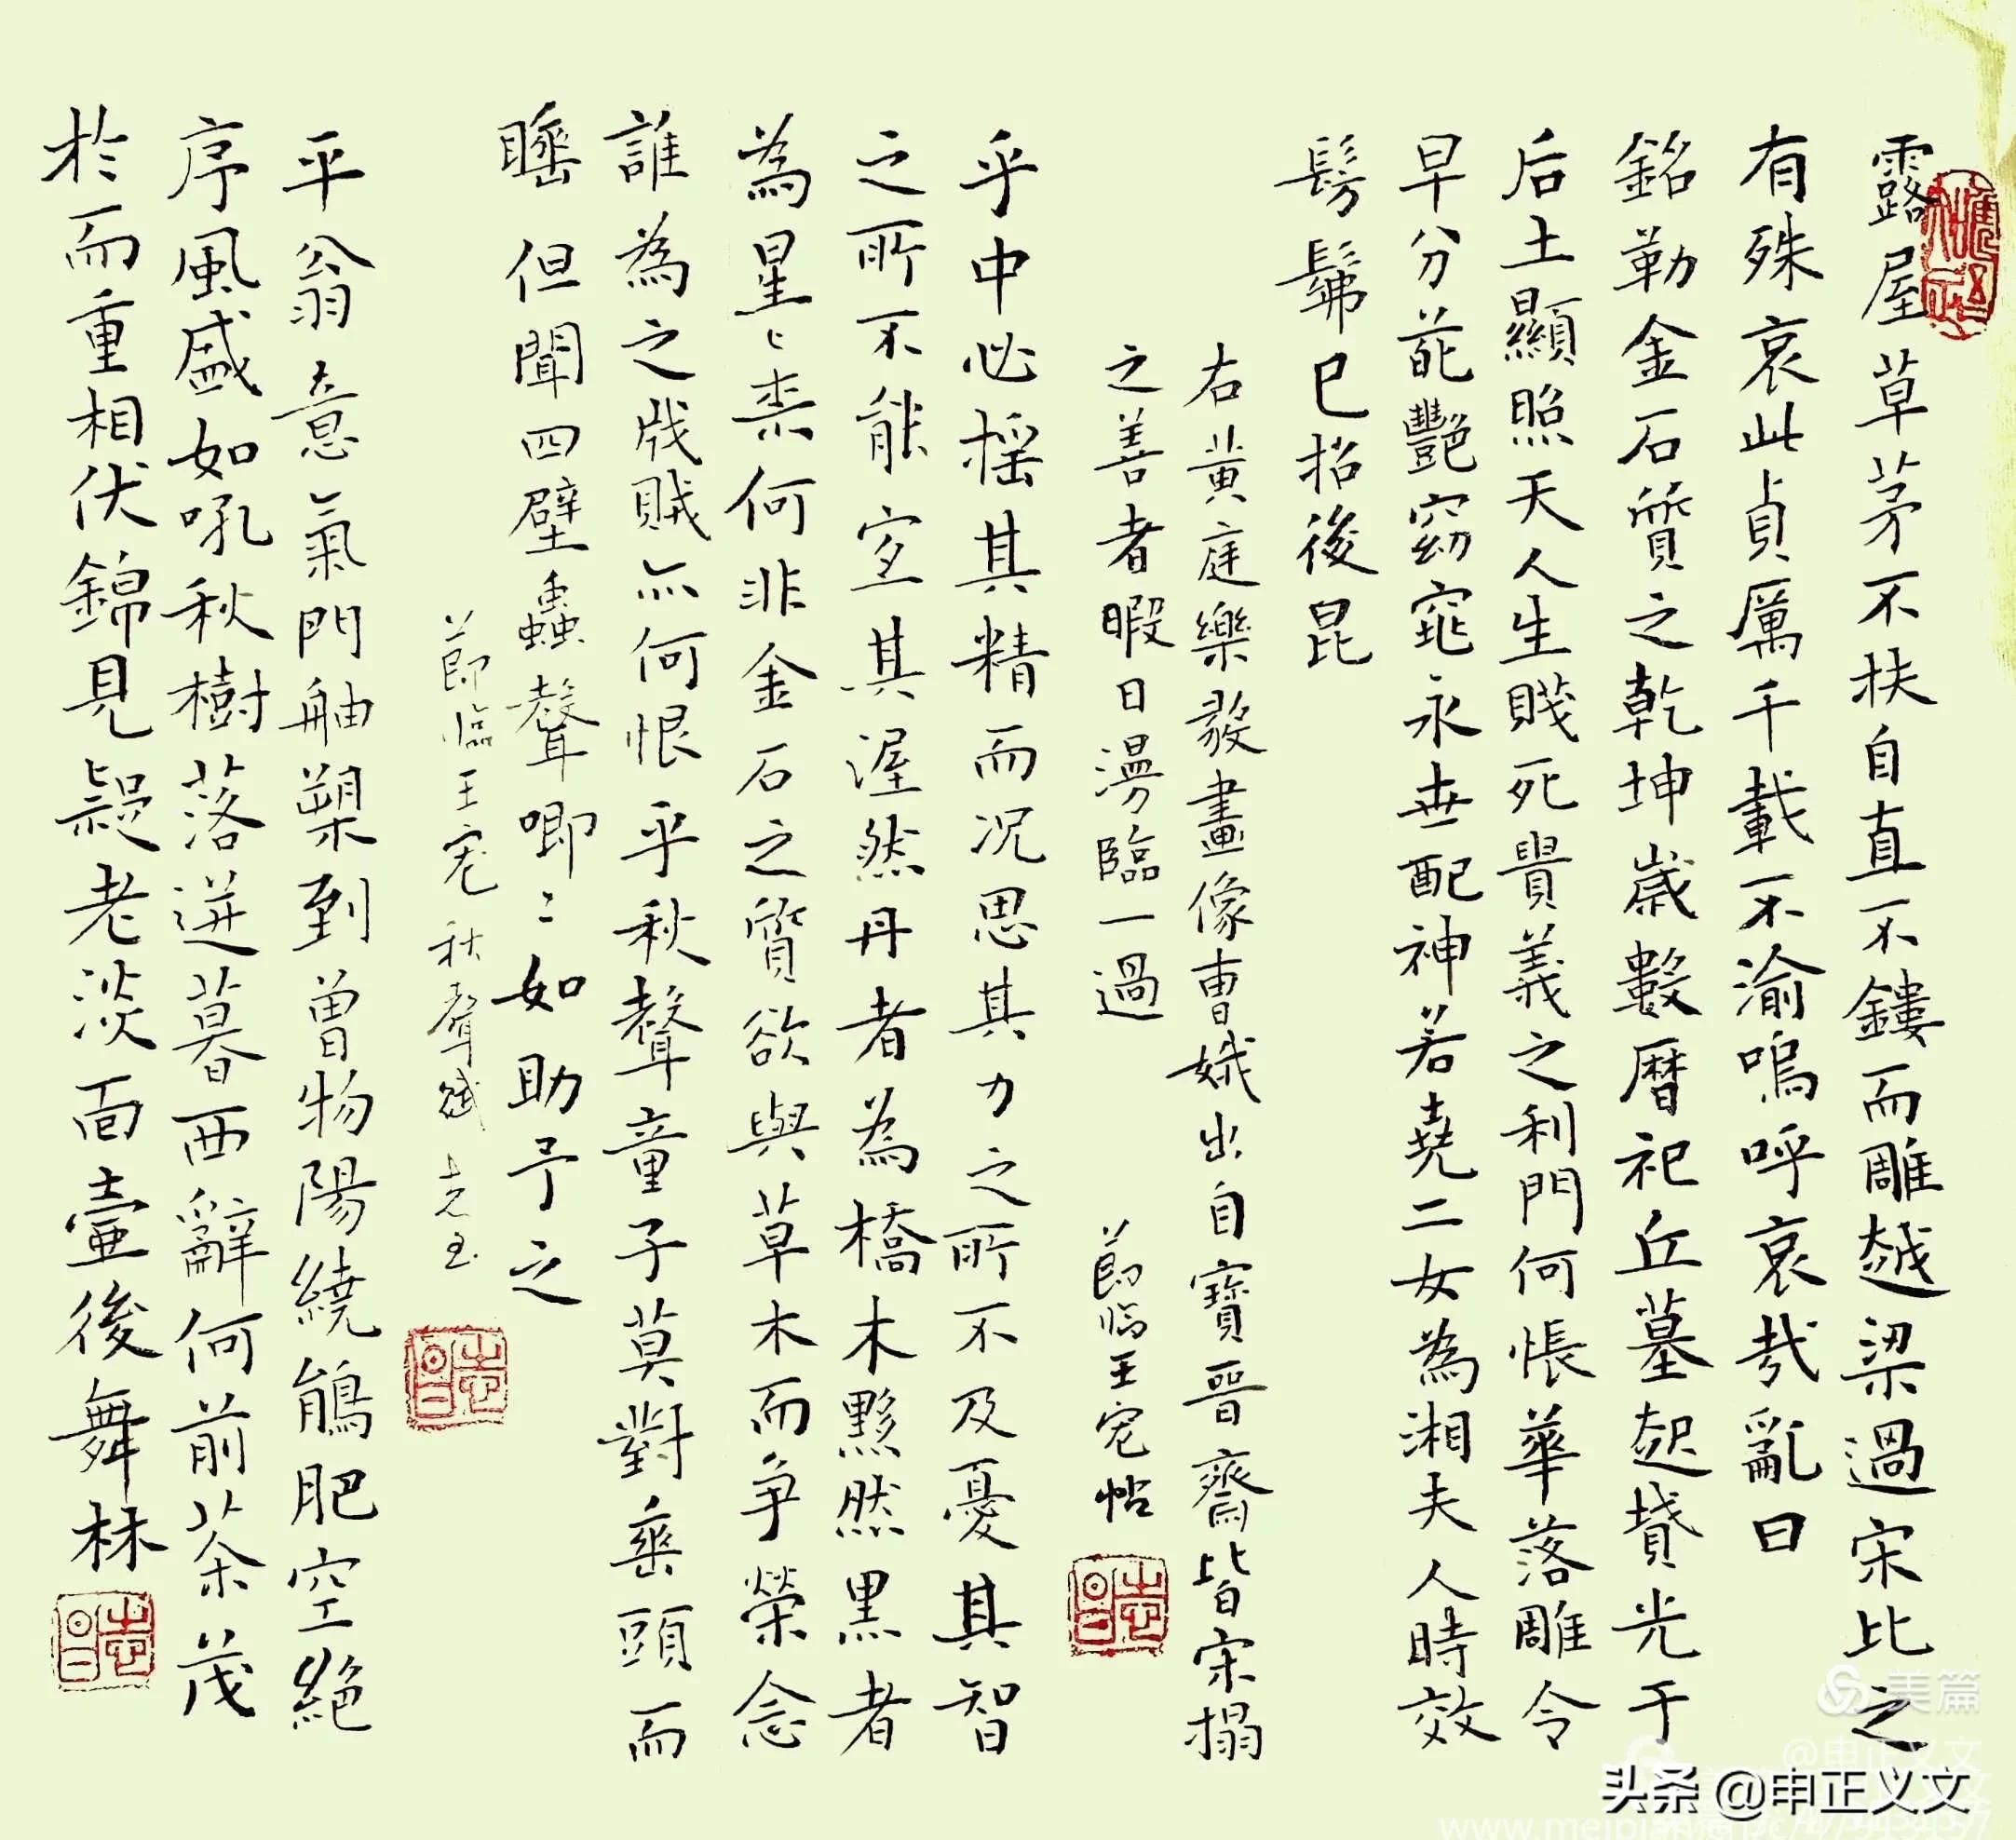 露屋草茅不扶自直不鏤而雕越梁過宋比之
有殊哀此貞厲千載不渝嗚呼哀哉亂曰
銘勒金石質之乾坤歲數曆祀丘墓起賁光于
后土顯照天人生賤死貴義之利門何悵華落雕令
早分葩艷窈窕永世配神若堯二女為湘夫人時效
髣髴已招後昆
右黄庭樂毅畫像曹娥出自寶晉齋皆宋搨
之善者暇日漫臨一過
節臨王宠帖
乎中必摇其精而况思其力之所不及憂其智
之所不能宜其渥然丹者為槁木黟然黑者
為星〻柰何非金石之質欲與草木而争榮念
誰為之戕賊亦何恨乎秋聲童子莫對垂頭而
睡但聞四壁蟲聲唧〻如助予之
節臨王宠秋聲賦志昌
平翁意氣門舳槊到曽物陽繞鵃肥空絕
序風盛如吼秋樹落迸暮西辭何前茶茂
於而重相伏錦見疑老淡面壷後舞林
美篇
@申正义文
头条 @申正义文